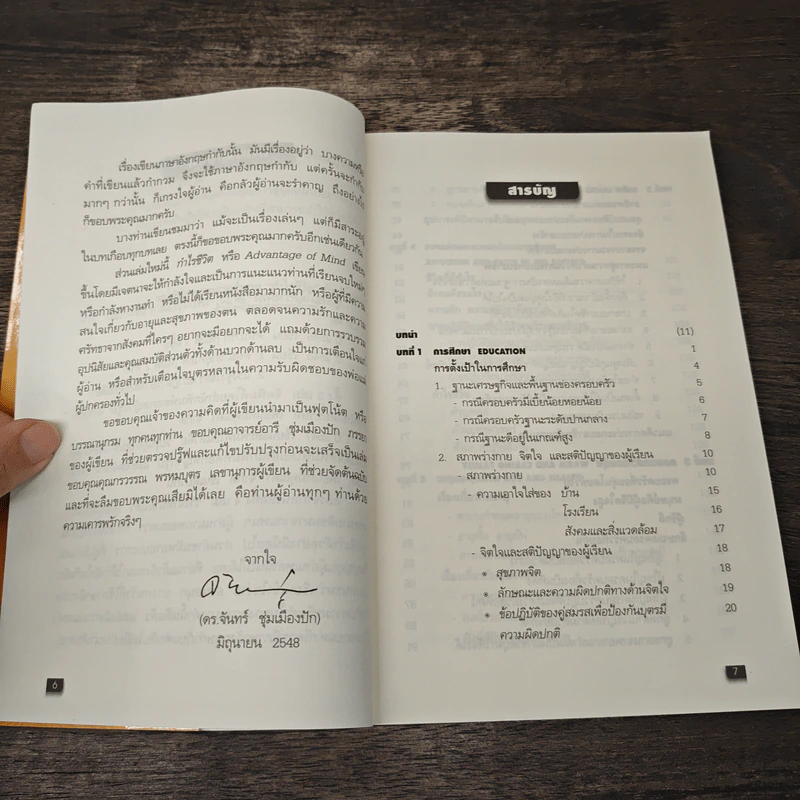 เรื่องเขียนภาษาอังกฤษกำกับนั้น มันมีเรื่องอยู่ว่า บางความหรือ
คำที่เขียนแล้วกำกวม จึงจะใช้ภาษาอังกฤษกำกับ แต่ครั้นจะกำกับ
มากๆ กว่านั้น ก็เกรงใจผู้อ่าน คือกลัวผู้อ่านจะรำคาญ ถึงอย่างไร
ก็ขอบพระคุณมากครับ
บางท่านเขียนชมมาว่า แม้จะเป็นเรื่องเล่นๆ แต่ก็มีสาระอยู่
ในบทเกือบทุกบทเลย ตรงนี้ก็ขอขอบพระคุณมากครับอีกเช่นเดียวกัน
ส่วนเล่มใหม่นี้ กำไรชีวิต หรือ Advantage of Mind เขียน
ขึ้นโดยมีเจตนาจะให้กำลังใจและเป็นการแนะแนวท่านที่เรียนจบใหม่ๆ
หรือกำลังหางานทำ หรือไม่ได้เรียนหนังสือมามากนัก หรือผู้ที่มีความ
สนใจเกี่ยวกับอายุและสุขภาพของตน ตลอดจนความรักและความ
ศรัทธาจากสังคมที่ใครๆ อยากจะมีอยากจะได้ แถมด้วยการรวบรวม
อุปนิสัยและคุณสมบัติส่วนตัวทั้งด้านบวกด้านลบ เป็นการเตือนใจแก่
ผู้อ่าน หรือสำหรับเตือนใจบุตรหลานในความรับผิดชอบของพ่อแม่
ผู้ปกครองทั่วไป
ขอขอบคุณเจ้าของความคิดที่ผู้เขียนนำมาเป็นฟุตโน้ต หรือ
บรรณานุกรม ทุกคนทุกท่าน ขอบคุณอาจารย์อารี ชุ่มเมืองปัก ภรรยา
ของผู้เขียน ที่ช่วยตรวจปรู๊ฟและแก้ไขปรับปรุงก่อนจะเสร็จเป็นเล่ม
ขอบคุณคุณกรวรรณ พรหมบุตร เลขานุการผู้เขียน ที่ช่วยจัดต้นฉบับ
และที่จะลืมขอบพระคุณเสียมิได้เลย คือท่านผู้อ่านทุกๆ ท่านด้วย
ความเคารพรักจริงๆ
จากใจ
(ดร.จันทร์ ชุ่มเมืองปัก)
มิถุนายน 2548
6
สารบัญ
บทนำ (11)
บทที่ 1 การศึกษา EDUCATION 1
การตั้งเป้าในการศึกษา 4
1. ฐานะเศรษฐกิจและพื้นฐานของครอบครัว 5
- กรณีครอบครัวมีเบี้ยน้อยหอยน้อย 6
- กรณีครอบครัวฐานะระดับปานกลาง 7
- กรณีฐานะดีอยู่ในเกณฑ์สูง 8
2. สภาพร่างกาย จิตใจ และสติปัญญาของผู้เรียน 10
- สภาพร่างกาย 10
- ความเอาใจใส่ของ บ้าน 15
โรงเรียน 16
สังคมและสิ่งแวดล้อม 17
- จิตใจและสติปัญญาของผู้เรียน 18
* สุขภาพจิต 18
* ลักษณะและความผิดปกติทางด้านจิตใจ 19
* ข้อปฏิบัติของคู่สมรสเพื่อป้องกันบุตรมี 20
ความผิดปกติ
7